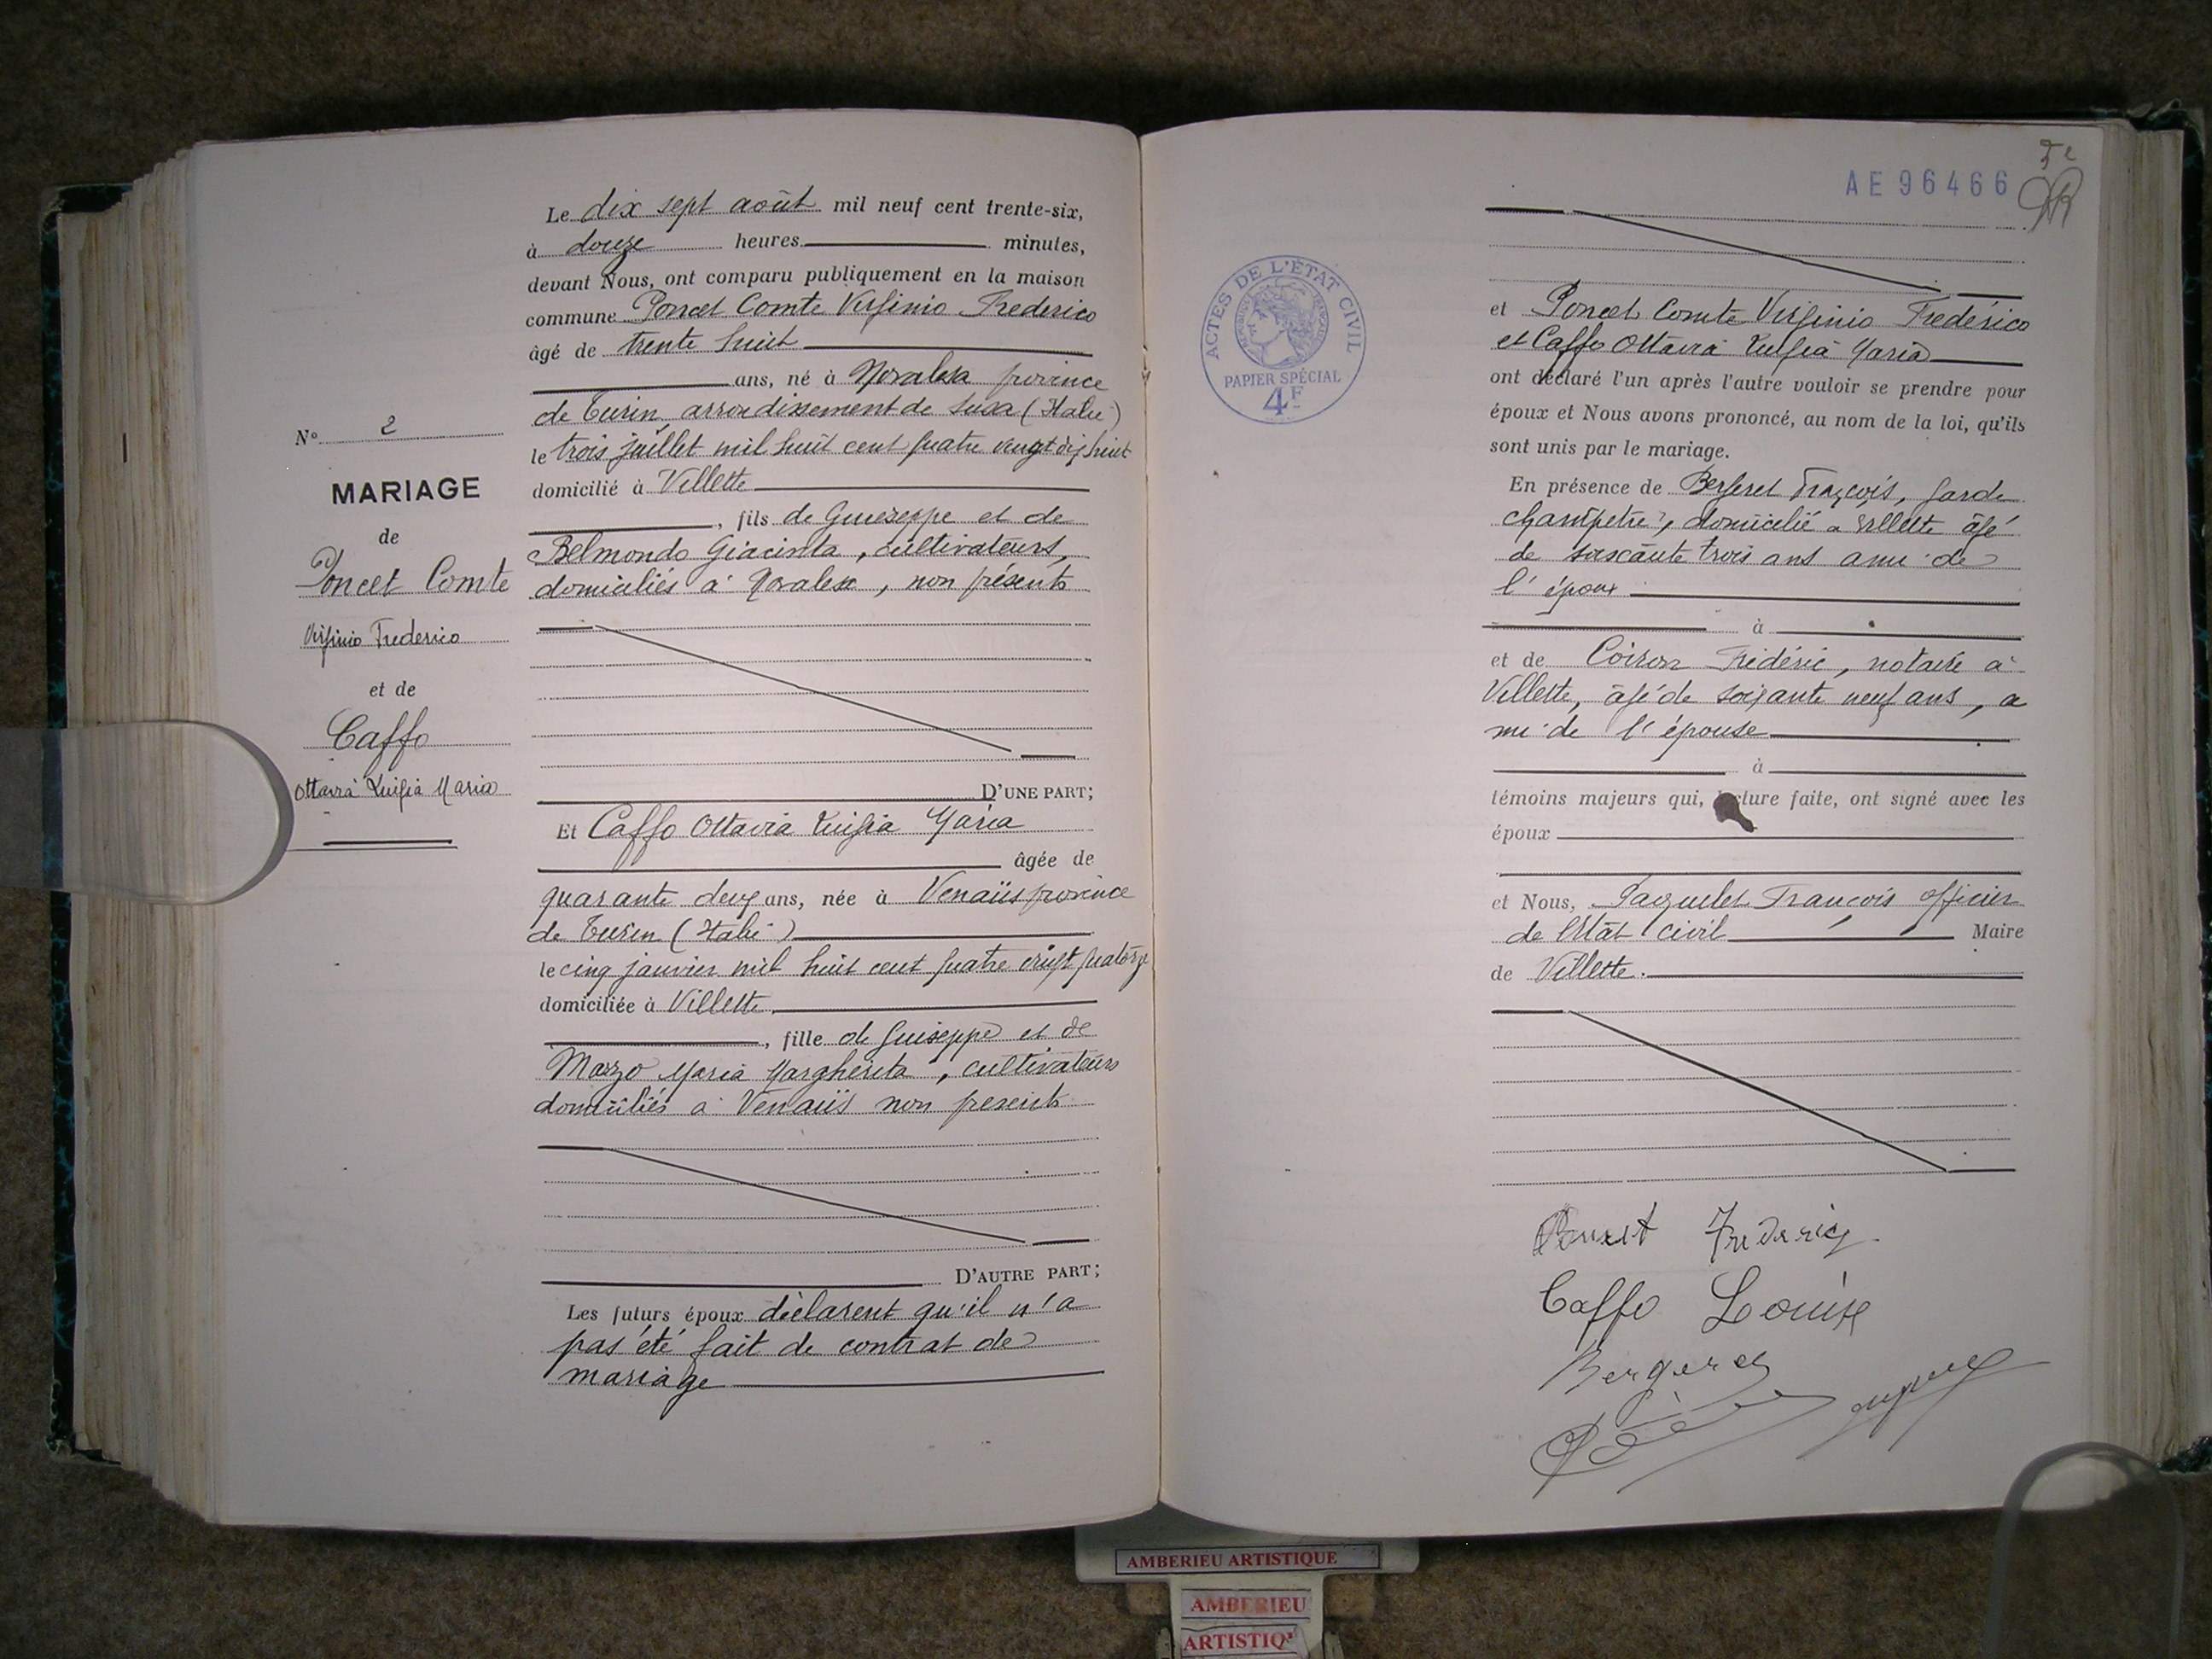 Le dix sept août mil neuf cent trente-six,
à douze heures minutes,
devant Nous, ont comparu publiquement en la maison
commune Poncet Comte Virginio Frederico
âgé de trente huit
ans, né à Novalesa province
de Turin, arrondissement de Susa (Italie)
le trois juillet mil huit cent quatre vingt dix huit
domicilié à Villette
, fils de Guiseppe et de
Belmondo Giacinta, cultivateurs,
domiciliés à Novalese, non présents
D'UNE PART;
Et Caffo Ottavia Luigia Maria
âgée de
quarante deux ans, née à Venaüs province
de Turin (Italie)
le cinq janvier mil huit cent quatre vingt quatorze
domiciliée à Villette
, fille de Guiseppe et de
Mazzo Maria Margherita, cultivateurs
domiciliés à Venaüs non présents
D'AUTRE PART;
Les futurs époux déclarent qu'il n'a
pas été fait de contrat de
mariage
N° 2
MARIAGE
de
Poncet Comte
Virginio Frederico
et de
Caffo
Ottavia Luigia Maria
AE 96466
ACTES DE L'ÉTAT CIVIL
PAPIER SPÉCIAL
4F
et Poncet Comte Virginio Frederico
et Caffo Ottavia Luigia Maria
ont déclaré l'un après l'autre vouloir se prendre pour
époux et Nous avons prononcé, au nom de la loi, qu'ils
sont unis par le mariage.
En présence de Bergeret François, garde
champêtre, domicilié à Villette âgé
de soixante trois ans ami de
l'époux
à
et de Coiron Frédéric, notaire à
Villette, âgé de soixante neuf ans, a
mi de l'épouse
à
témoins majeurs qui, lecture faite, ont signé avec les
époux
et Nous, Paquelet François officier
de l'état civil Maire
de Villette.
Poncet Frederic
Caffo Louise
Bergeret
AMBERIEU ARTISTIQUE
AMBERIEU
ARTISTIQ